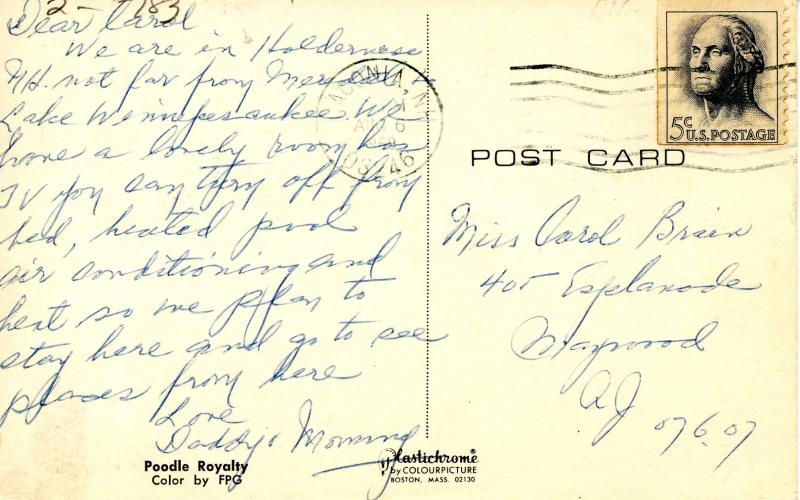 2- 183
Dear Carol
We are in Holderness
NH. not far from
Lake Winnepesaukee. We
have a lovely room has
TV you can turn off from
bed, heated pool
air conditioning and
heat so we plan to
stay here and go to see
places from here
Love
Daddy &
Poodle Royalty
Color by FPG
Plastichrome®
by COLOURPICTURE
BOSTON, MASS. 02130
LACONIA, N.H.
5¢ U.S. POSTAGE
POST CARD
Miss Carol Brain
405 Esplanade
Maywood
NJ 07607